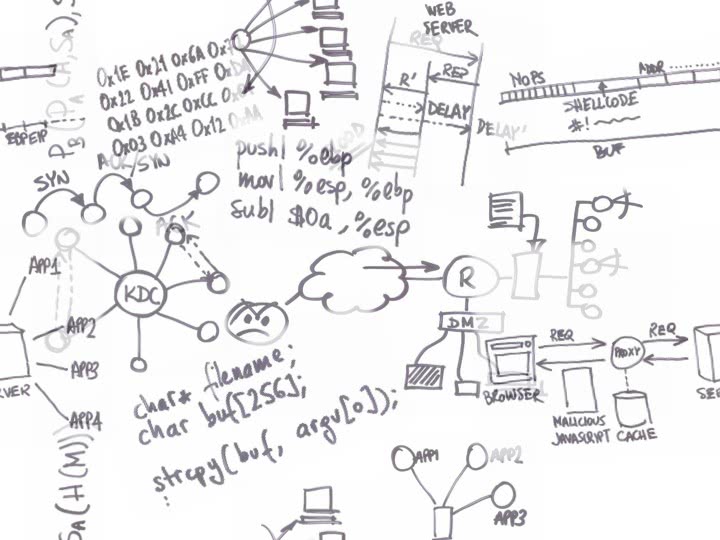 WEB
SERVER
REQ
0x1E 0x21 0x6A
0x22 0x41 0xFF
0x1B 0x2C 0xCC
0x03 0xA4 0x12
R'
REQ
DELAY
DELAY'
NOPS
ADDR
SHELLCODE
#!
BUF
pushl %ebp
movl %esp, %ebp
subl $0a, %esp
SYN
ACK/SYN
ACK
KDC
R
DMZ
APP1
APP2
APP3
APP4
char* filename;
char buf[256];
strcpy(buf, argv[0]);
BROWSER
REQ
PROXY
REQ
MALICIOUS
JAVASCRIPT
CACHE
APP1
APP2
APP3
(H(M))